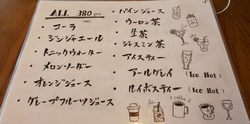 ALL 380yen
・コーラ
・ジンジャエール
・トニックウォーター
・メロンソーダー
・オレンジジュース
・グレープフルーツジュース
・パインジュース
・ウーロン茶
・生茶
・ジャスミン茶
・アイスティー
・アールグレイ (Ice Hot)
・ルイボスティー (Ice Hot)